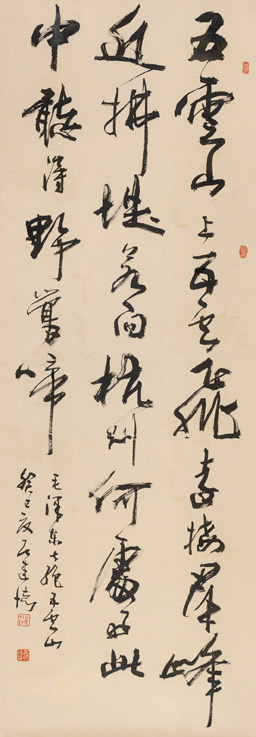 五雲山上五雲飛遠接群峰
近拂堤若问杭州何處好此
中聽得野鶯啼
毛澤东七绝五雲山
癸巳夏